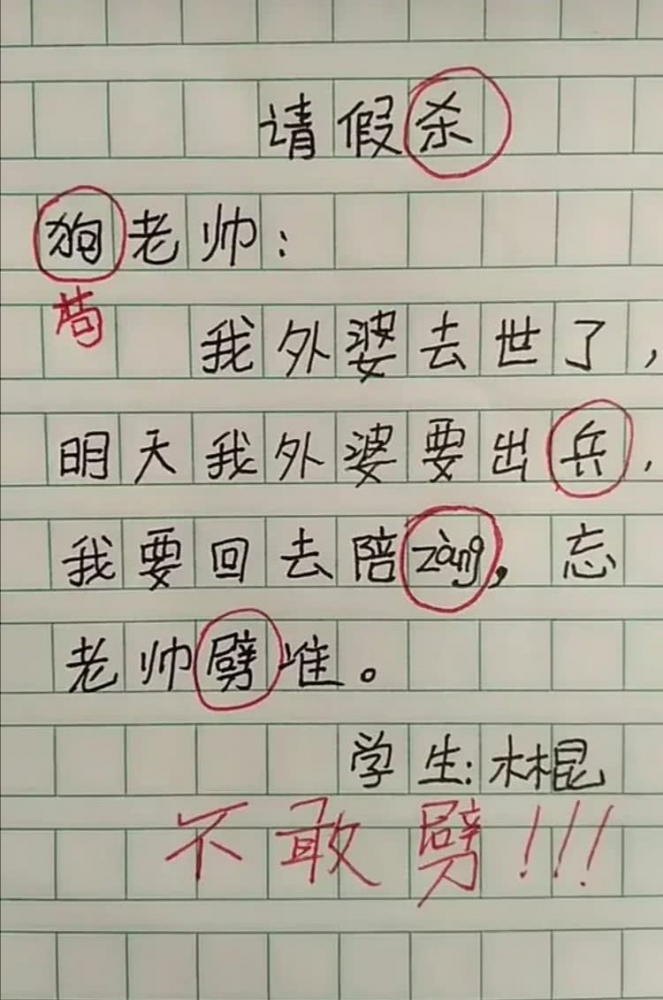 请假杀
狗老帅:
苟
我外婆去世了,
明天我外婆要出兵,
我要回去陪zàng,忘
老帅劈堆。
学生:木棍
不敢劈!!!